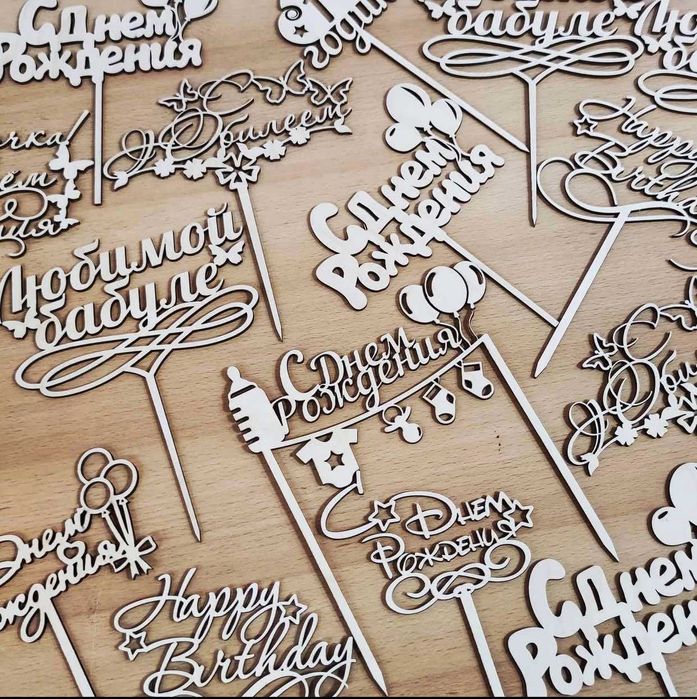 С Днем
Рождения
годик
бабуле
Любимой
С
Юбилеем
С Днем
Рождения
Happy
Birthday
Любимой
бабуле
С Днем
Рождения
С
Днем
Рождения
Happy
Birthday
С Днем
Рождения